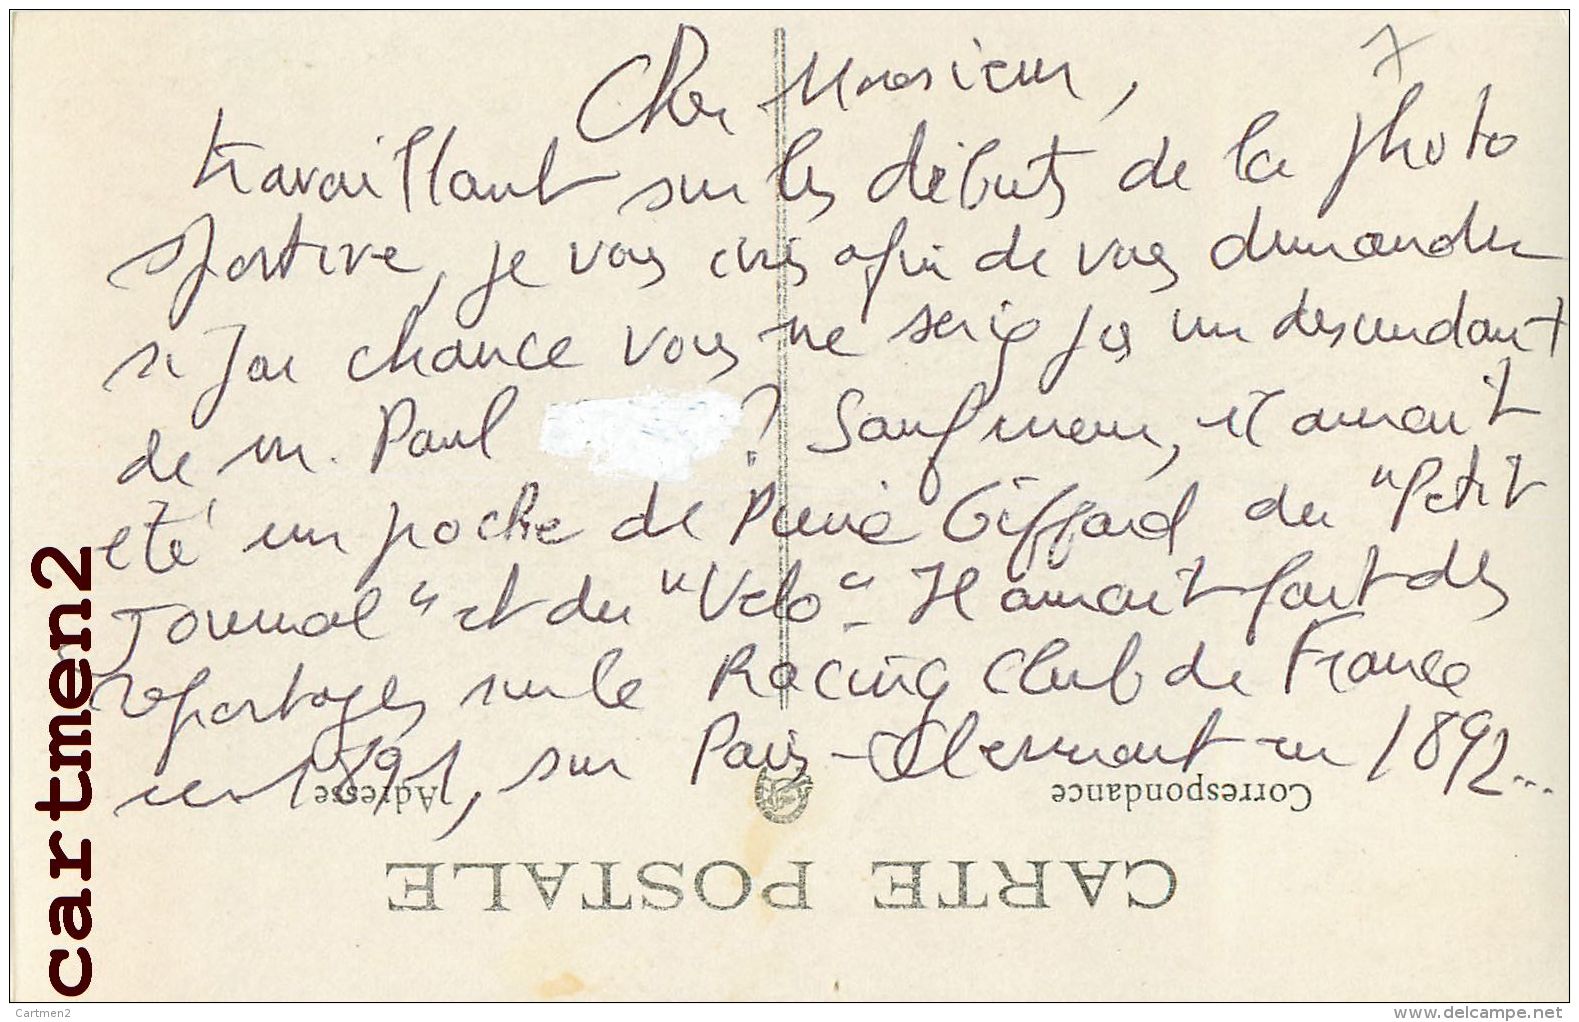 Cher Monsieur,
travaillant sur les débuts de la photo
sportive, je vous écris afin de vous demander
si par chance vous ne seriez pas un descendant
de M. Paul ? Sauf erreur, il aurait
été un proche de Pierre Giffard du "Petit
Journal" et du "Vélo". Il aurait fait des
reportages sur le Racing Club de France
en 1891, sur Paris-Clermont en 1892...
Correspondance
Adresse
CARTE POSTALE
cartmen2
Cartmen2
www.delcampe.net